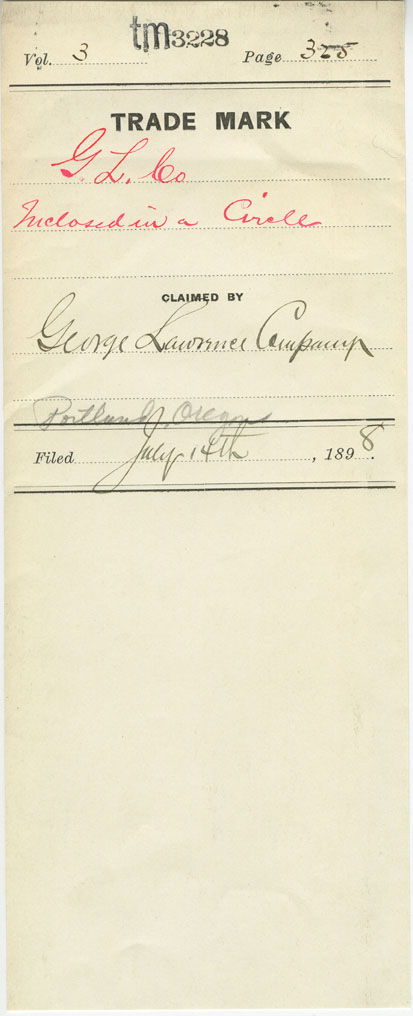 tm3228
Vol. 3 Page 328
TRADE MARK
G. L. Co
Inclosed in a Circle
CLAIMED BY
George Lawrence Company
Portland, Oregon
Filed July 14th, 1898.